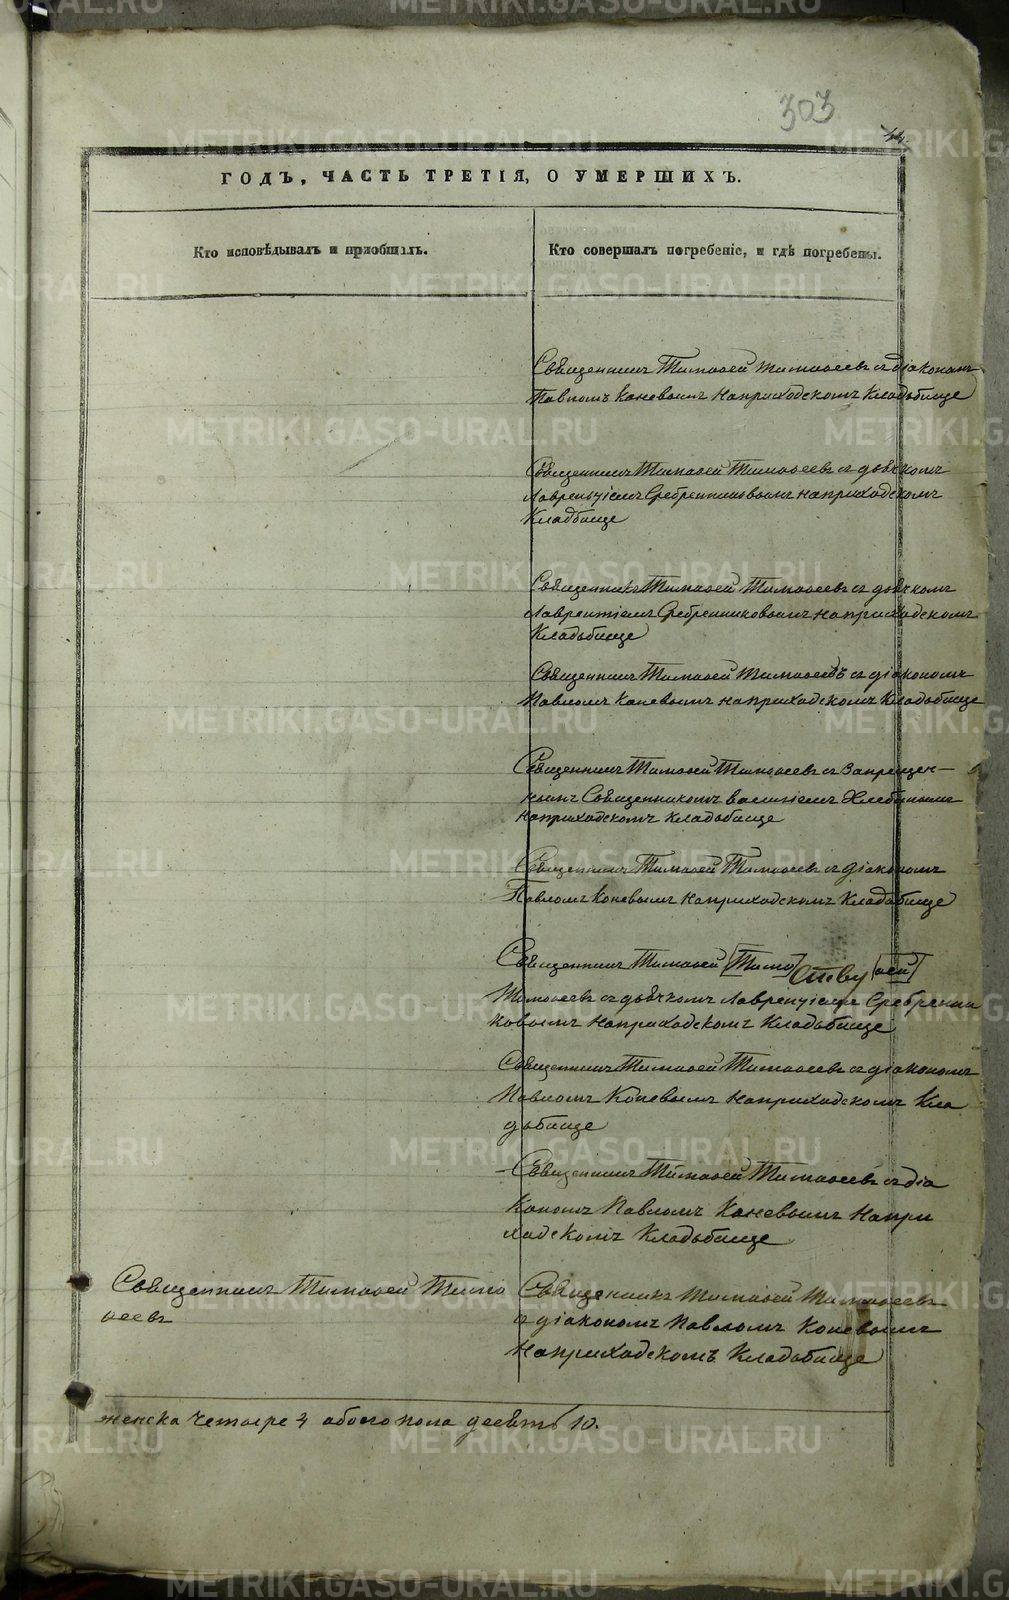 303
ГОДЪ, ЧАСТЬ ТРЕТІЯ, О УМЕРШИХЪ.
Кто исповѣдывалъ и пріобщалъ.
Кто совершалъ погребеніе, и гдѣ погребены.
Священникъ Тимоѳей Тимоѳеевъ съ діакономъ
Павломъ Каневымъ наприходскомъ Кладьбище
Священникъ Тимоѳей Тимоѳеевъ съ дьячкомъ
Лаврентіемъ Сребренниковымъ наприходскомъ
Кладбище
Священникъ Тимоѳей Тимоѳеевъ съ дьячкомъ
Лаврентіемъ Сребренниковымъ наприходскомъ
Кладьбище
Священникъ Тимоѳей Тимоѳеевъ съ діакономъ
Павломъ Каневымъ наприходскомъ Кладьбище
Священникъ Тимоѳей Тимоѳеевъ съ Запрещен-
нымъ Священникомъ Василіемъ Хлебинымъ
наприходскомъ Кладьбище
Священникъ Тимоѳей Тимоѳеевъ съ діакономъ
Павломъ Коневымъ наприходскомъ Кладьбище
Священникъ Тимоѳей [Тимо] [ѳей]
Тимоѳеевъ съ дьячкомъ Лаврентіемъ Сребренни
ковымъ наприходскомъ Кладьбище
Священникъ Тимоѳей Тимоѳеевъ съ діакономъ
Павломъ Коневымъ наприходскомъ Кла
дьбище
Священникъ Тимоѳей Тимоѳеевъ съ діа
кономъ Павломъ Каневымъ напри
ходскомъ Кладьбище
Священникъ Тимоѳей Тимо
ѳеевъ
Священникъ Тимоѳей Тимоѳеевъ
съ діакономъ Павломъ Коневымъ
наприходскомъ Кладьбище
женска четыре 4 обоего пола десять 10.
METRIKI.GASO-URAL.RU